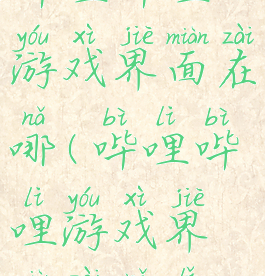 yóu xì jiè miàn zài
游戏界面在
nǎ bì lì bì
哪(哔哩哔
lì yóu xì jiè
哩游戏界